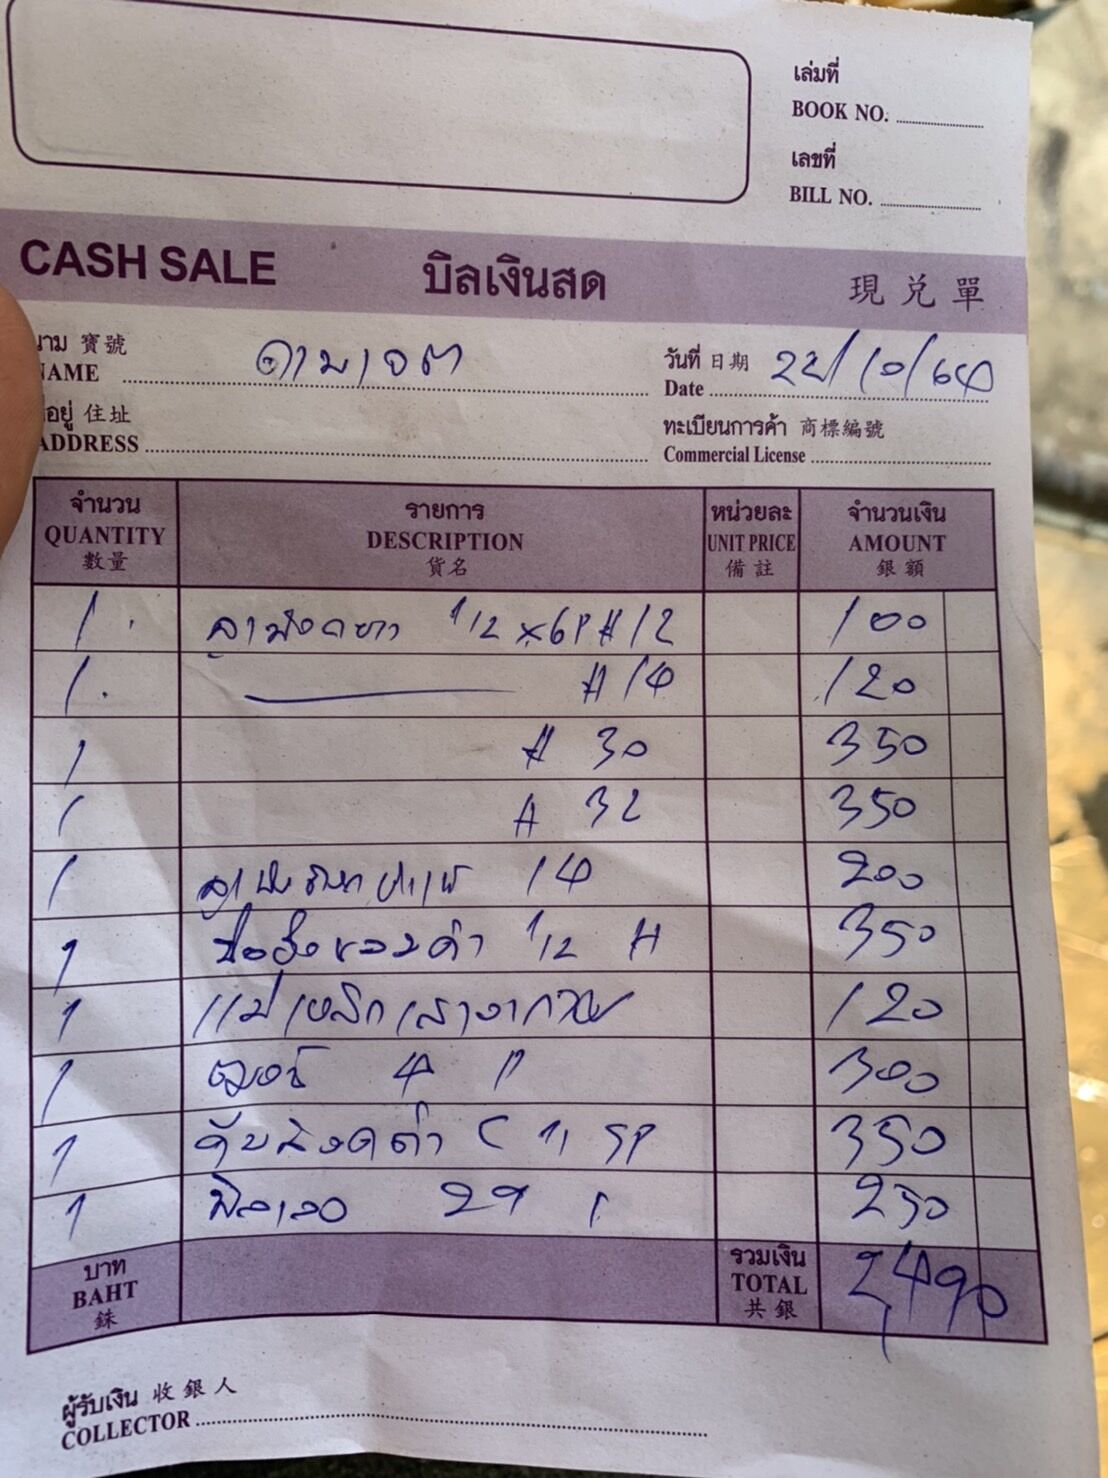 เล่มที่
BOOK NO.
เลขที่
BILL NO.
CASH SALE บิลเงินสด 現兌單
นาม 寶號
NAME
วันที่ 日期 22/10/64
Date
ที่อยู่ 住址
ADDRESS
ทะเบียนการค้า 商標編號
Commercial License
จำนวน รายการ หน่วยละ จำนวนเงิน
QUANTITY DESCRIPTION UNIT PRICE AMOUNT
數量 貨名 備註 銀額
1 1/2 x 6P H 12 100
1 H 14 120
1 H 30 350
1 H 32 350
1 14 200
1 1/2 H 350
1 แม่เหล็ก 120
1 4 300
1 350
1 250
บาท รวมเงิน
BAHT TOTAL 2,490
銖 共銀
ผู้รับเงิน 收銀人
COLLECTOR